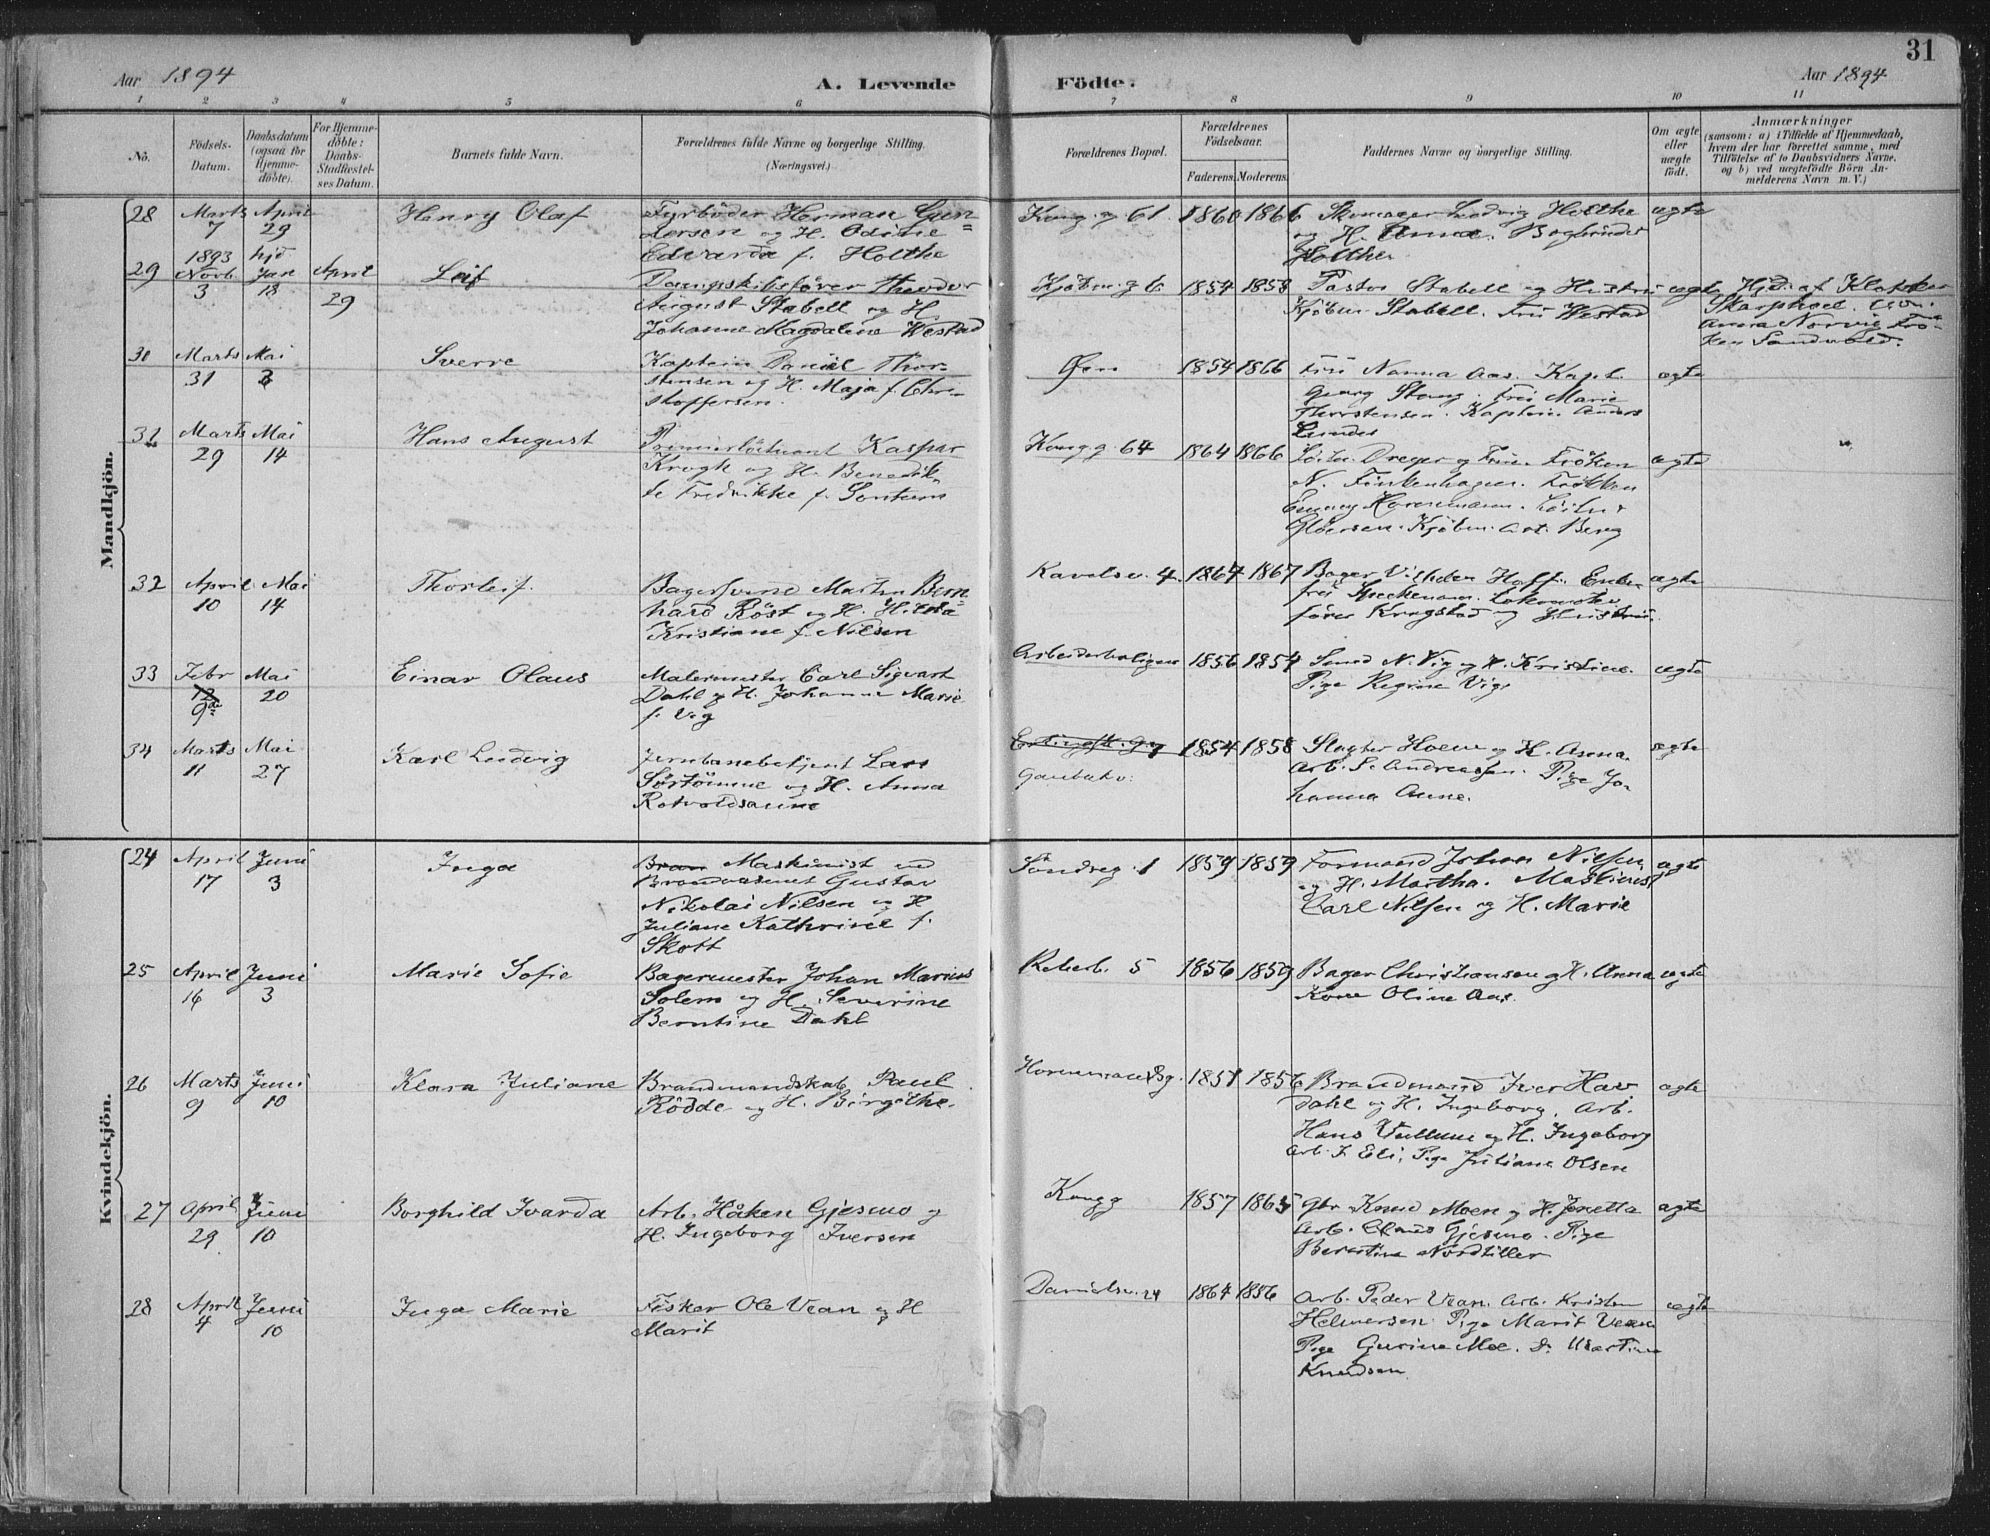 Aar 1894
A. Levende
Födte.
31
Aar 1894
1 2 3 4 5 6 7 8 9 10 11
No.
Födsels-
Datum.
Daabsdatum
(ogsaa for
Hjemme-
döbte).
For Hjemme-
döbte:
Daabs-
Stadfæstel-
ses Datum.
Barnets fulde Navn.
Forældrenes fulde Navne og borgerlige Stilling.
(Næringsvei.)
Forældrenes Bopæl.
Forældrenes
Födselsaar.
Faderens. Moderens.
Faddernes Navne og borgerlige Stilling.
Om ægte
eller
uægte
födt.
Anmærkninger
(saasom: a) i Tilfælde af Hjemmedaab,
hvem der har forrettet samme, med
Tilföielse af to Daabsvidners Navne.
og b) ved uægtefödte Börn An-
melderens Navn m. V.)
Mandkjön.
28 Marts 7 April 29 Henry Olaf
Fyrböder Herman Gun-
dersen og H. Odine
Edvarda f. Holthe
Kong. g 61 1860 1866
Skomager Ludvig Holthe
og H. Anna. Bogbinder
Holthe
ægte
29 1893 Novb. 3 hjd Jan 18 April 29 Leif
Dampskibsfører Theodor
August Stabell og H.
Johanne Magdalene Westad
Kjöbm. g 6 1854 1858
Pastor Stabell og Hustru
Kjöbm Stabell. Fru Westad
ægte
Hjd. af Klokker
Skarphoel.
Anna Norvic Frö-
ken Sandvold.
30 Marts 31 Mai 3 Sverre
Kaptein Daniel Thor-
stensen og H. Maja f. Chri-
stoffersen.
Øen 1854 1866
Fru Nanna Aas. Kapt.
Georg Stang. Fru Marie
Thorstensen. Kaptein Anders
Lundes
ægte
31 Marts 29 Mai 14 Hans August
Premierlöitnant Kaspar
Krogh og H. Benedik-
te Fredrikke f. Sontum
Kong g. 64 1864 1866
Löitn. Dreyer og Frue. Fröken
N. Finkenhagen. Frökken
Emmy Hornemann. Löitn.
Gløersen. Kjöbm. Berg
ægte
32 April 10 Mai 14 Thorleif.
Bagersvend Martin Bern-
hard Röst og H. Hilda
Kristiane f. Nilsen
Kavelsv. 4. 1864 1867
Bager Hoff. Enke-
fru Lokomotiv
förer Krogstad og Hustru.
ægte
33 Febr 12 9de Mai 20 Einar Olaus
Malermester Carl Sigvart
Dahl og H. Johanne Marie
f. Vig
Arbeiderboligen 1856 1854
Smed N. Vig og H. Kristine.
Pige Regine Vig
ægte
34 Marts 11 Mai 27 Karl Ludvig
Jernbanebetjent Lars
Sørtömme og H. Anna
Rotvoldsaune
1854 1858
Slagter Hoem og H. Anna.
Arb. S. Andreassen. Pige Jo-
hanna Aune.
ægte
Kvindekjön.
24 April 17 Juni 3 Inga
Bran Maskinist ved
Brandvæsenet Gustav
Nikolai Nilsen og H
Juliane Kathrine f.
Skott
Söndreg. 1 1859 1859
Formand Johan Nilsen
og H. Martha. Maskinist
Carl Nilsen og H. Marie
ægte
25 April 16 Juni 3 Marie Sofie
Bagermester Johan Marius
Solem og H. Severine
Berntine Dahl
Reberb. 5 1856 1859
Bager Christiansen og H. Anna
Kone Oline Aas.
ægte
26 Marts 9 Juni 10 Klara Juliane
Brandmandskab Paul
Rödde og H. Birgithe.
Hornemansg. 1851 1856
Brandmand Iver Hav
dahl og H. Ingeborg. Arb.
Hans Vullum og H. Ingeborg
Arb. f. Eli, Pige Juliane Olsen
ægte
27 April 29 Juni 10 Borghild Ivarda
Arb. Håken Gjesmo og
H. Ingeborg Iversen
Kong g 1857 1865
Gbr Knud Moen og H. Jonetta
Arb. Claus Gjesmo. Pige
Berntine Nordtiller
ægte
28 April 4 Juni 10 Inga Marie
Fisker Ole Vean og H
Marit
Danielsv. 24 1864 1856
Arb. Peder Vean. Arb. Kristen
Helmersen. Pige Marit Vean
Pige Gurine Moe. D. Martine
Knudsen.
ægte